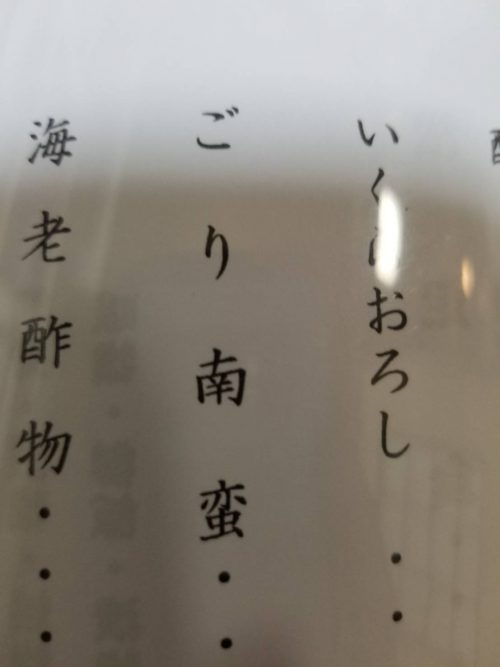 いくらおろし・・
ごり南蛮・・
海老酢物・・・